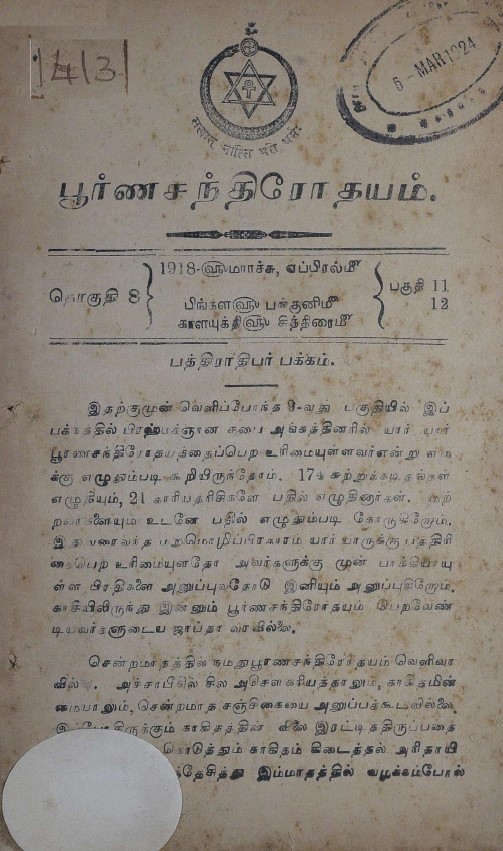 1413
6 - MAR 1924
பூர்ணசந்திரோதயம்.
தொகுதி 8
1918-௵ மார்ச்சு, ஏப்ரல்௴
பிங்கள௵ பங்குனி௴
காளயுக்தி௵ சித்திரை௴
பகுதி 11
12
பத்திராதிபர் பக்கம்.
இதற்குமுன் வெளிப்போந்த 9-வது பகுதியில் இப்
பக்கத்தில் பிரஹ்மஞான சபை அங்கத்தினரில் யார் யார்
பூரணசந்திரோதயத்தைப்பெற உரிமையுள்ளவர் என்று எமக்
கு எழுதும்படி கூறியிருந்தோம். சுற்றுக்கடிதங்கள்
எழுதியும், 21 காரியதரிசிகளே பதில் எழுதினார்கள். மற்
றவர்களையும் உடனே பதில் எழுதும்படி கோருகிறோம்.
இதுவரைவந்த மறுமொழிப்பிரகாரம் யார் யாருக்கு பத்திரி
கைபெற உரிமையுளதோ அவர்களுக்கு முன் பாக்கியாயு
ள்ள பிரதிகளை அனுப்புவதோடு இனியும் அனுப்புகிறோம்.
காசியிலிருந்து இன்னும் பூர்ணசந்திரோதயம் பெறவேண்
டியவர்களுடைய ஜாப்தா வரவில்லை.
சென்றமாதத்தில் நமதுபூரணசந்திரோதயம் வெளிவர
வில்லை. அச்சாபிசில் சில அசௌகரியத்தாலும், காகிதமின்
மையாலும், சென்றமாத சஞ்சிகையை அனுப்பக்கூடவில்லை.
இப்போதிருக்கும் காகிதத்தின் விலை இரட்டித்திருப்பதை
கொடுத்தும் காகிதம் கிடைத்தல் அரிதாயி
இம்மாதத்தில் வழக்கம்போல்